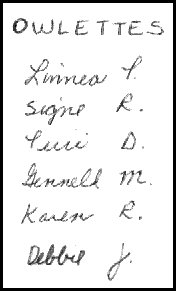 OWLETTES
Linnea T.
Signe R.
Teri D.
Gennell M.
Karen R.
Debbie J.